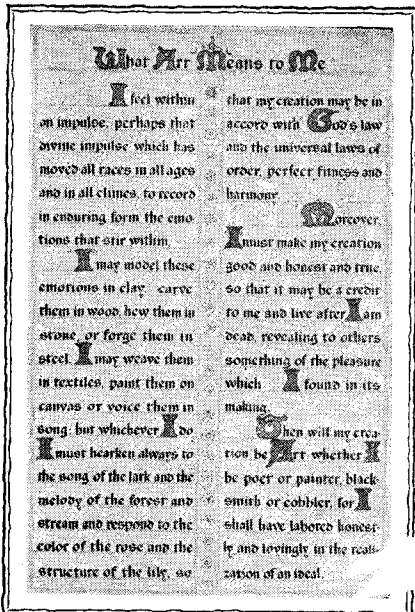 What Art Means to Me
I feel within
an impulse, perhaps that
divine impulse which has
moved all races in all ages
and in all climes, to record
in enduring form the emo-
tions that stir within.
I may model these
emotions in clay, carve
them in wood, hew them in
stone, or forge them in
steel. I may weave them
in textiles, paint them on
canvas or voice them in
song; but whichever I do
I must hearken always to
the song of the lark and the
melody of the forest and
stream and respond to the
color of the rose and the
structure of the lily, so
that my creation may be in
accord with God's law
and the universal laws of
order, perfect fitness and
harmony.
Moreover,
I must make my creation
good and honest and true,
so that it may be a credit
to me and live after I am
dead, revealing to others
something of the pleasure
which I found in its
making.
Then will my crea-
tion be Art whether I
be poet or painter, black-
smith or cobbler, for I
shall have labored honest-
ly and lovingly in the reali-
zation of an ideal.